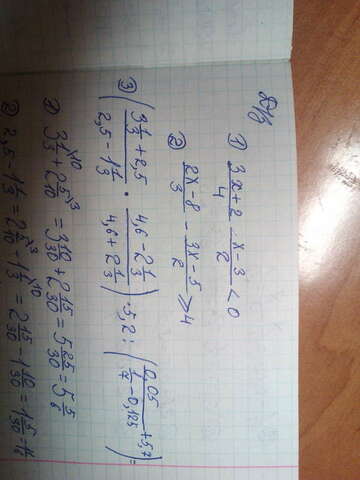 Д/з
1) (3x+2)/4 - (x-3)/2 < 0
2) (2x-8)/3 - (3x-5)/2 ≥ 4
3) ((3 1/3 + 2,5)/(2,5 - 1 1/3) · (4,6 - 2 1/3)/(4,6 + 2 1/3)) · 5,2 : (0,05/(1/7 - 0,125) + 5,7) =
1) 3 1/3 ×10 + 2 5/10 ×3 = 3 10/30 + 2 15/30 = 5 25/30 = 5 5/6
2) 2,5 - 1 1/3 = 2 5/10 ×3 - 1 1/3 ×10 = 2 15/30 - 1 10/30 = 1 5/30 = 1 1/6